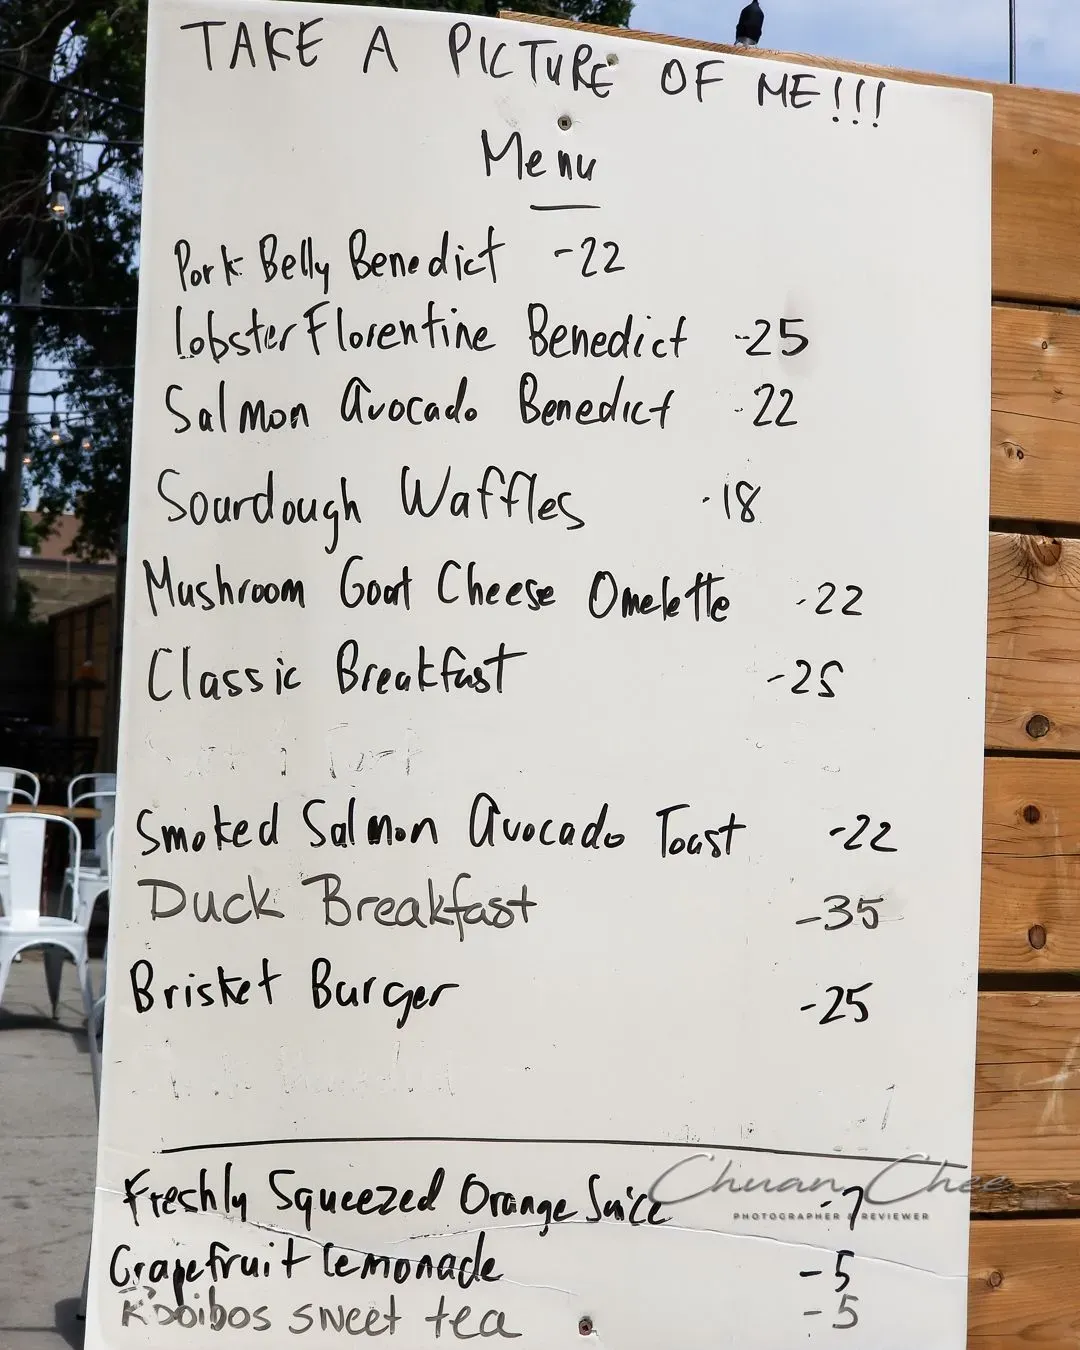 TAKE A PICTURE OF ME!!!
Menu
Pork Belly Benedict -22
Lobster Florentine Benedict -25
Salmon Avocado Benedict -22
Sourdough Waffles -18
Mushroom Goat Cheese Omelette -22
Classic Breakfast -25
Smoked Salmon Avocado Toast -22
Duck Breakfast -35
Brisket Burger -25
Freshly Squeezed Orange Juice -7
Grapefruit Lemonade -5
Rooibos sweet tea -5
Chuan Chee
PHOTOGRAPHER & REVIEWER